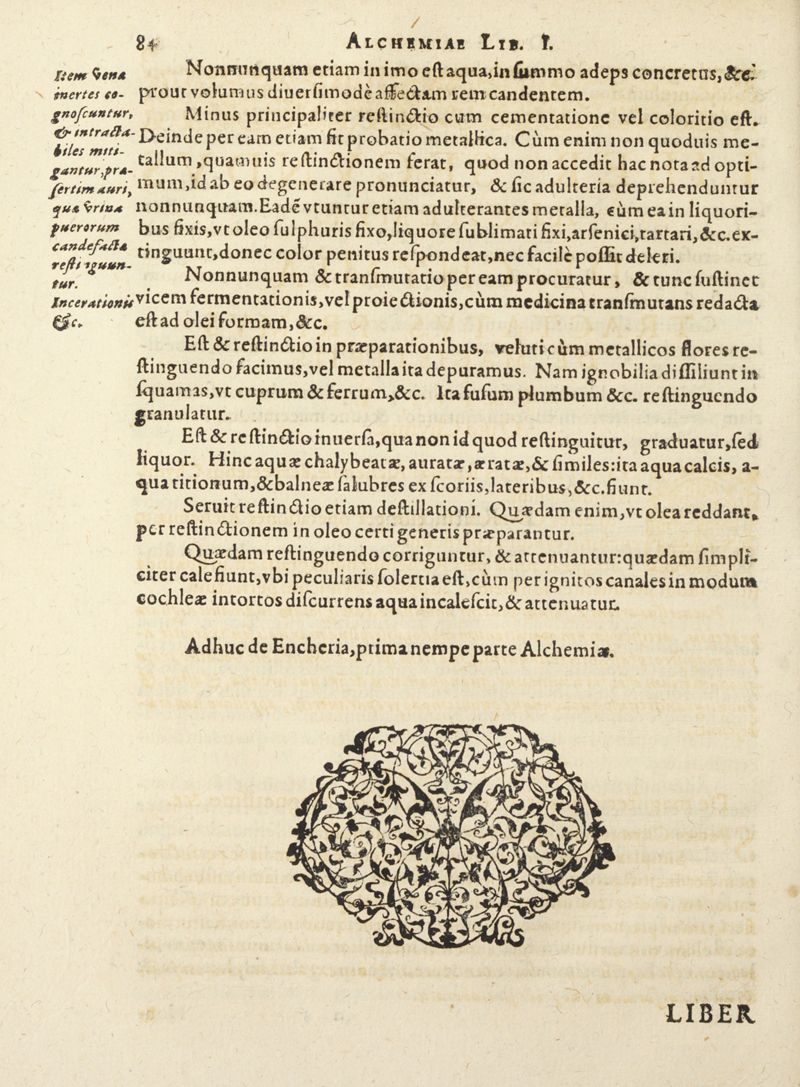 84 ALCHEMIAE LIB. I.
Item vena
inertes co-
gnoſcuntur,
& intracta-
biles miti-
gantur, præ-
ſertim auri,
qua vrina
puerorum
candefacta
reſtinguun-
tur.
Incerationis
&c.
Nonnunquam etiam in imo eſt aqua, in ſummo adeps concretus, &c.
prout volumus diuerſimodè affectam rem candentem.
Minus principaliter reſtinctio cum cementatione vel coloritio eſt.
Deinde per eam etiam fit probatio metallica. Cùm enim non quoduis me-
tallum, quamuis reſtinctionem ferat, quod non accedit hac nota ad opti-
mum, id ab eo degenerare pronunciatur, & ſic adulteria deprehenduntur
nonnunquam. Eadē vtuntur etiam adulterantes metalla, cùm ea in liquori-
bus fixis, vt oleo ſulphuris fixo, liquore ſublimati fixi, arſenici, tartari, &c. ex-
tinguunt, donec color penitus reſpondeat, nec facilè poſſit deleri.
Nonnunquam & tranſmutatio per eam procuratur, & tunc ſuſtinet
vicem fermentationis, vel proiectionis, cùm medicina tranſmutans redacta
eſt ad olei formam, &c.
Eſt & reſtinctio in præparationibus, veluti cùm metallicos flores re-
ſtinguendo facimus, vel metalla ita depuramus. Nam ignobilia diſſiliunt in
ſquamas, vt cuprum & ferrum, &c. Ita fuſum plumbum &c. reſtinguendo
granulatur.
Eſt & reſtinctio inuerſa, qua non id quod reſtinguitur, graduatur, ſed
liquor. Hinc aquæ chalybeatæ, auratæ, æratæ, & ſimiles: ita aqua calcis, a-
qua titionum, & balneæ ſalubres ex ſcoriis, lateribus, &c. fiunt.
Seruit reſtinctio etiam deſtillationi. Quædam enim, vt olea reddant,
per reſtinctionem in oleo certi generis præparantur.
Quædam reſtinguendo corriguntur, & attenuantur: quædam ſimpli-
citer calefiunt, vbi peculiaris ſolertia eſt, cùm per ignitos canales in modum
cochleæ intortos diſcurrens aqua incaleſcit, & attenuatur.
Adhuc de Encheria, prima nempe parte Alchemiæ.
LIBER